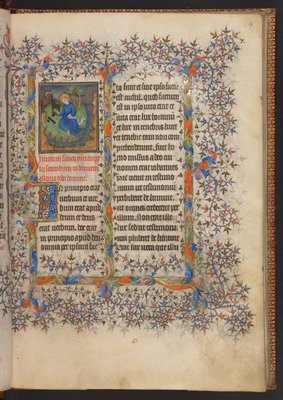 Inicium sancti euuange
lij secundum iohannem
Gloria tibi domine
IN principio erat
uerbum et uer
bum erat apud
deum et deus
erat uerbum. hoc erat
in principio apud deu
omnia per ipsum fac
ta sunt et sine ipso factu
est nichil. quod factum
est in ipso uita erat
et uita erat lux hominu
et lux in tenebris lucet
et tenebre eam non com
prehenderunt. fuit ho
mo missus a deo cui
nomen erat iohannes
hic uenit in testimo
nium ut testimonium
perhiberet de lumine
ut omnes crederent per
illum. Non erat ille
lux sed ut testimoni
um perhiberet de lumine
erat lux uera que illu